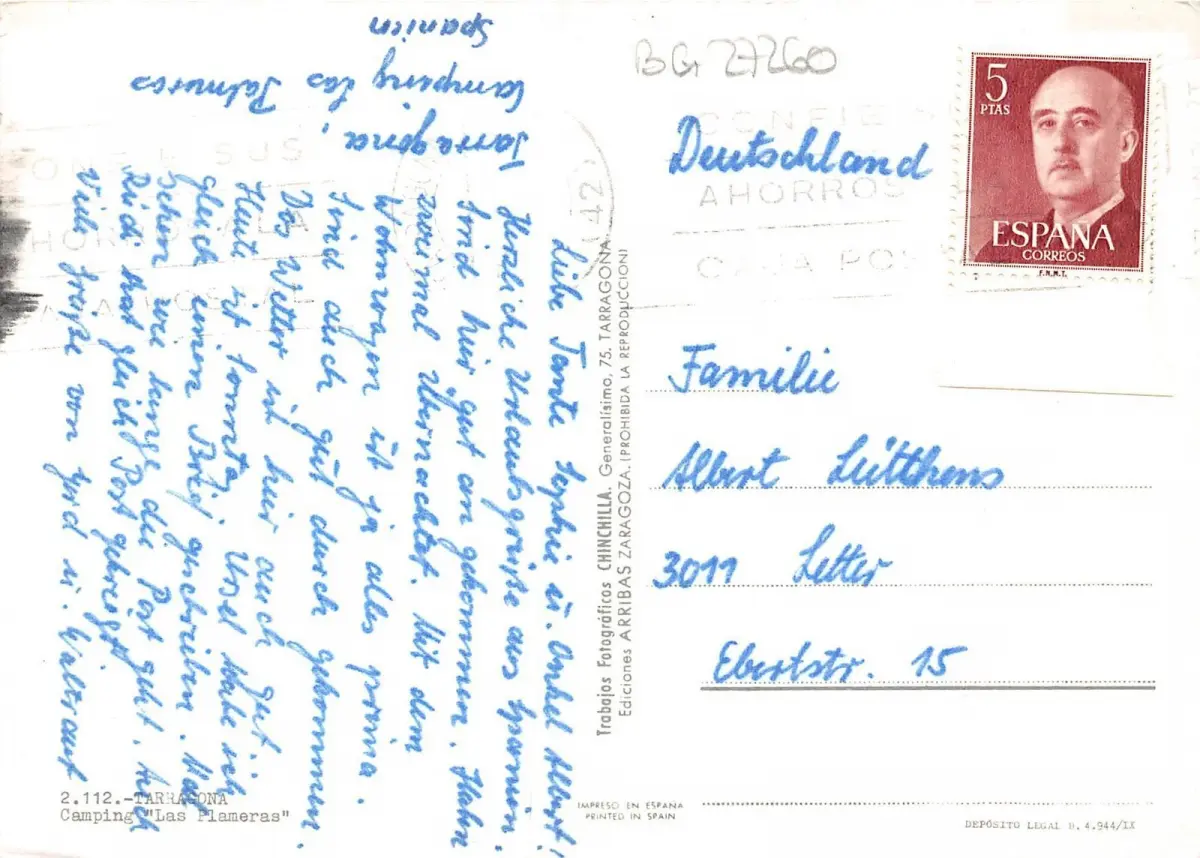 BG 27260
5
PTAS
ESPAÑA
CORREOS
F.N.M.T.
AHORROS
42
Deutschland
Familie
Albert Lütthens
3011 Letter
Ebertstr. 15
Tarragona,
Camping Las Palmeras
Spanien
Liebe Tante Sophie u. Onkel Albert!
Herzliche Urlaubsgrüße aus Spanien.
Sind hier gut angekommen. Haben
zweimal Übernachtet. Mit dem
Wohnwagen ist ja alles prima.
Sind auch gut durch gekommen.
Das Wetter ist hier auch gut.
Heute ist Sonntag. Habe ich
gleich einen Brief geschrieben. Mal
Sehen wie lange die Post geht. Auch
hat gleich Post gekriegt.
Viele Grüße von Gerd u. Waltraut
Trabajos Fotográficos CHINCHILLA. Generalísimo, 75. TARRAGONA
Ediciones ARRIBAS ZARAGOZA. (PROHIBIDA LA REPRODUCCION)
2.112.-TARRAGONA
Camping "Las Plameras"
IMPRESO EN ESPAÑA
PRINTED IN SPAIN
DEPÓSITO LEGAL B. 4.944/IX